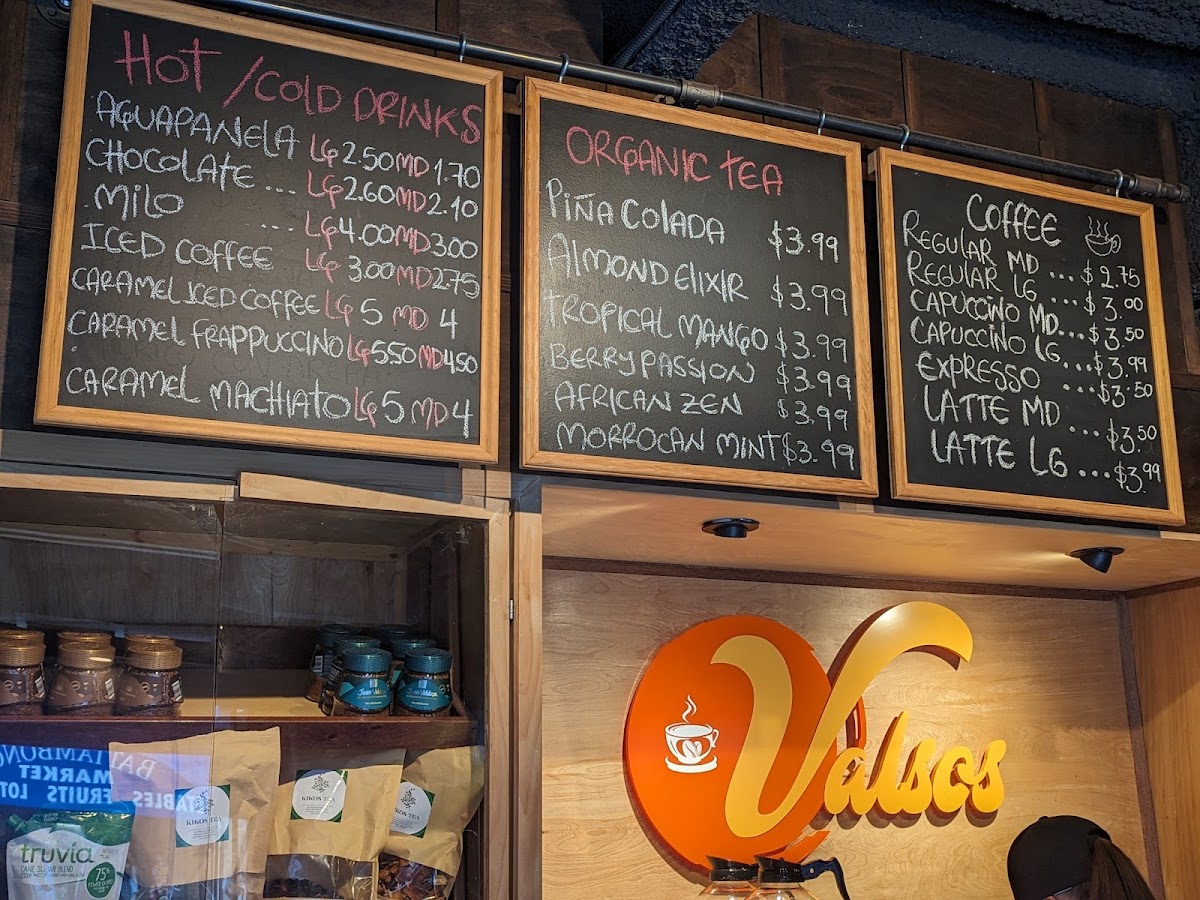 HOT / COLD DRINKS
AGUAPANELA LG 2.50 MD 1.70
CHOCOLATE .... LG 2.60 MD 2.10
MILO ... LG 4.00 MD 3.00
ICED COFFEE LG 3.00 MD 2.75
CARAMEL ICED COFFEE LG 5 MD 4
CARAMEL FRAPPUCCINO LG 5.50 MD 4.50
CARAMEL MACHIATO LG 5 MD 4
ORGANIC TEA
PIÑA COLADA $3.99
ALMOND ELIXIR $3.99
TROPICAL MANGO $3.99
BERRY PASSION $3.99
AFRICAN ZEN $3.99
MORROCAN MINT $3.99
COFFEE
REGULAR MD ... $2.75
REGULAR LG ... $3.00
CAPUCCINO MD... $3.50
CAPUCCINO LG ...$3.99
EXPRESSO ...$3.50
LATTE MD ...$3.50
LATTE LG ...$3.99
Valsos
Juan Valdez
BATTAMBONG
MARKET
TABLES FRUITS LOT
KIKOS TEA
KIKOS TEA
truvia
CANE SUGAR BLEND
75%